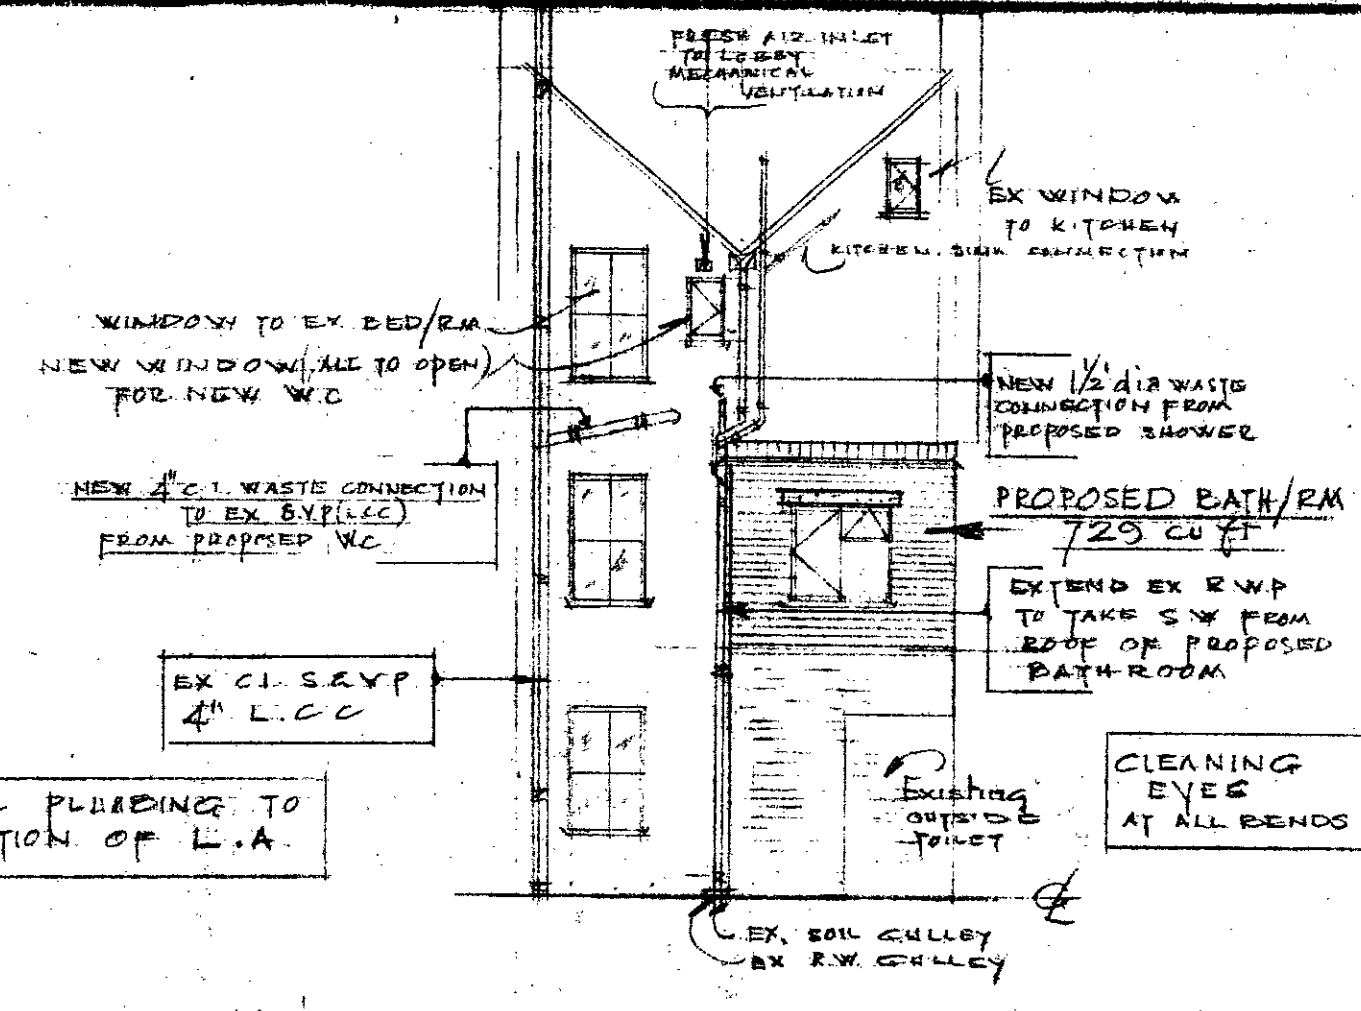 FRESH AIR INLET
TO LOBBY
MECHANICAL
VENTILATION
EX WINDOW
TO KITCHEN
KITCHEN SINK CONNECTION
WINDOW TO EX BED/RM
NEW WINDOW (ALL TO OPEN)
FOR NEW W.C
NEW 1/2' dia WASTE
CONNECTION FROM
PROPOSED SHOWER
NEW 4" C.I. WASTE CONNECTION
TO EX S.V.P (LCC)
FROM PROPOSED WC
PROPOSED BATH/RM
729 cu ft
EXTEND EX R.W.P
TO TAKE S.W FROM
ROOF OF PROPOSED
BATH-ROOM
EX C.I. S&VP
4" L.C.C
PLUMBING TO
TION OF L.A
Existing
OUTSIDE
TOILET
CLEANING
EYES
AT ALL BENDS
EX. SOIL GULLEY
EX R.W. GULLEY